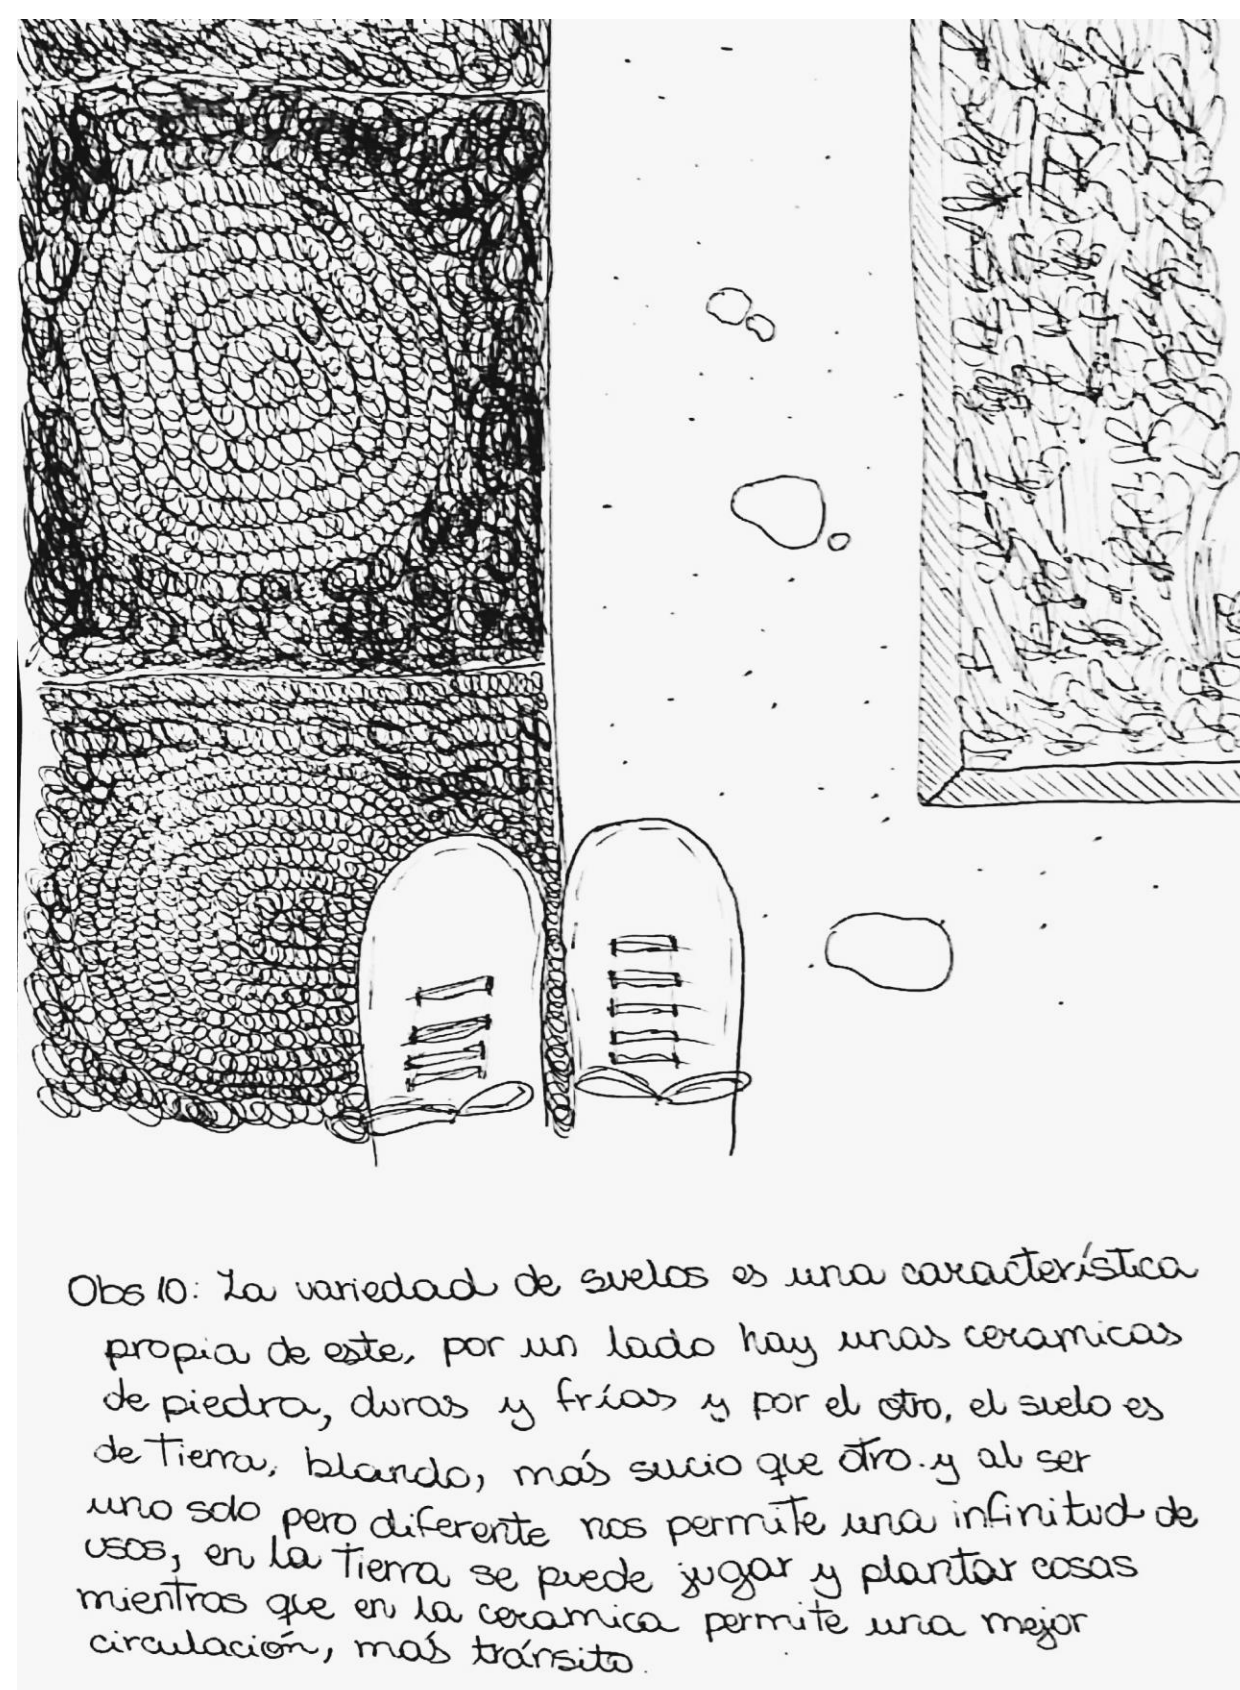 Obs 10: La variedad de suelos es una característica
propia de este, por un lado hay unas ceramicas
de piedra, duras y frías y por el otro, el suelo es
de tierra, blando, más sucio que otro. y al ser
uno solo pero diferente nos permite una infinitud de
usos, en la tierra se puede jugar y plantar cosas
mientras que en la ceramica permite una mejor
circulación, más tránsito.